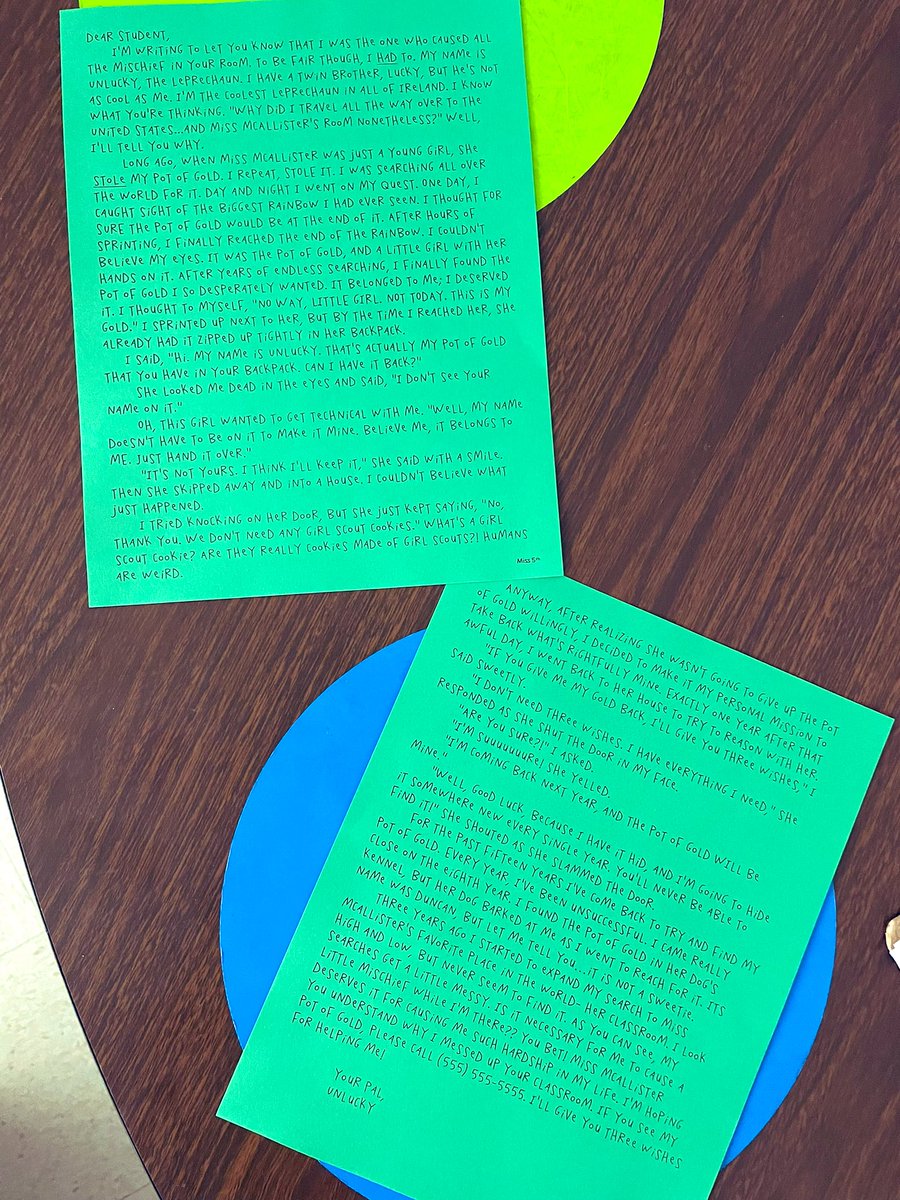 DEAR STUDENT,
I'M WRITING TO LET YOU KNOW THAT I WAS THE ONE WHO CAUSED ALL
THE MISCHIEF IN YOUR ROOM. TO BE FAIR THOUGH, I HAD TO. MY NAME IS
UNLUCKY, THE LEPRECHAUN. I HAVE A TWIN BROTHER, LUCKY, BUT HE'S NOT
AS COOL AS ME. I'M THE COOLEST LEPRECHAUN IN ALL OF IRELAND. I KNOW
WHAT YOU'RE THINKING. "WHY DID I TRAVEL ALL THE WAY OVER TO THE
UNITED STATES...AND MISS MCALLISTER'S ROOM NONETHELESS?" WELL,
I'LL TELL YOU WHY.
LONG AGO, WHEN MISS MCALLISTER WAS JUST A YOUNG GIRL, SHE
STOLE MY POT OF GOLD. I REPEAT, STOLE IT. I WAS SEARCHING ALL OVER
THE WORLD FOR IT. DAY AND NIGHT I WENT ON MY QUEST. ONE DAY, I
CAUGHT SIGHT OF THE BIGGEST RAINBOW I HAD EVER SEEN. I THOUGHT FOR
SURE THE POT OF GOLD WOULD BE AT THE END OF IT. AFTER HOURS OF
SPRINTING, I FINALLY REACHED THE END OF THE RAINBOW. I COULDN'T
BELIEVE MY EYES. IT WAS THE POT OF GOLD, AND A LITTLE GIRL WITH HER
HANDS ON IT. AFTER YEARS OF ENDLESS SEARCHING, I FINALLY FOUND THE
POT OF GOLD I SO DESPERATELY WANTED. IT BELONGED TO ME; I DESERVED
IT. I THOUGHT TO MYSELF, "NO WAY, LITTLE GIRL. NOT TODAY. THIS IS MY
GOLD." I SPRINTED UP NEXT TO HER, BUT BY THE TIME I REACHED HER, SHE
ALREADY HAD IT ZIPPED UP TIGHTLY IN HER BACKPACK.
I SAID, "HI. MY NAME IS UNLUCKY. THAT'S ACTUALLY MY POT OF GOLD
THAT YOU HAVE IN YOUR BACKPACK. CAN I HAVE IT BACK?"
SHE LOOKED ME DEAD IN THE EYES AND SAID, "I DON'T SEE YOUR
NAME ON IT."
OH, THIS GIRL WANTED TO GET TECHNICAL WITH ME. "WELL, MY NAME
DOESN'T HAVE TO BE ON IT TO MAKE IT MINE. BELIEVE ME, IT BELONGS TO
ME. JUST HAND IT OVER."
"IT'S NOT YOURS. I THINK I'LL KEEP IT," SHE SAID WITH A SMILE.
THEN SHE SKIPPED AWAY AND INTO A HOUSE. I COULDN'T BELIEVE WHAT
JUST HAPPENED.
I TRIED KNOCKING ON HER DOOR, BUT SHE JUST KEPT SAYING, "NO,
THANK YOU. WE DON'T NEED ANY GIRL SCOUT COOKIES." WHAT'S A GIRL
SCOUT COOKIE? ARE THEY REALLY COOKIES MADE OF GIRL SCOUTS?! HUMANS
ARE WEIRD.
Miss 5th
ANYWAY, AFTER REALIZING SHE WASN'T GOING TO GIVE UP THE POT
OF GOLD WILLINGLY, I DECIDED TO MAKE IT MY PERSONAL MISSION TO
TAKE BACK WHAT'S RIGHTFULLY MINE. EXACTLY ONE YEAR AFTER THAT
AWFUL DAY, I WENT BACK TO HER HOUSE TO TRY TO REASON WITH HER.
"IF YOU GIVE ME MY GOLD BACK, I'LL GIVE YOU THREE WISHES," I
SAID SWEETLY.
"I DON'T NEED THREE WISHES. I HAVE EVERYTHING I NEED," SHE
RESPONDED AS SHE SHUT THE DOOR IN MY FACE.
"ARE YOU SURE?!" I ASKED.
"I'M SUUUUUURE! SHE YELLED.
"I'M COMING BACK NEXT YEAR, AND THE POT OF GOLD WILL BE
MINE."
"WELL, GOOD LUCK, BECAUSE I HAVE IT HID, AND I'M GOING TO HIDE
IT SOMEWHERE NEW EVERY SINGLE YEAR. YOU'LL NEVER BE ABLE TO
FIND IT!" SHE SHOUTED AS SHE SLAMMED THE DOOR.
FOR THE PAST FIFTEEN YEARS I'VE COME BACK TO TRY AND FIND MY
POT OF GOLD. EVERY YEAR, I'VE BEEN UNSUCCESSFUL. I CAME REALLY
CLOSE ON THE EIGHTH YEAR. I FOUND THE POT OF GOLD IN HER DOG'S
KENNEL, BUT HER DOG BARKED AT ME AS I WENT TO REACH FOR IT. ITS
NAME WAS DUNCAN. BUT LET ME TELL YOU...IT IS NOT A SWEETIE.
THREE YEARS AGO I STARTED TO EXPAND MY SEARCH TO MISS
MCALLISTER'S FAVORITE PLACE IN THE WORLD- HER CLASSROOM. I LOOK
HIGH AND LOW, BUT NEVER SEEM TO FIND IT. AS YOU CAN SEE, MY
SEARCHES GET A LITTLE MESSY. IS IT NECESSARY FOR ME TO CAUSE A
LITTLE MISCHIEF WHILE I'M THERE?? YOU BET! MISS MCALLISTER
DESERVES IT FOR CAUSING ME SUCH HARDSHIP IN MY LIFE. I'M HOPING
YOU UNDERSTAND WHY I MESSED UP YOUR CLASSROOM. IF YOU SEE MY
POT OF GOLD, PLEASE CALL (555) 555-5555. I'LL GIVE YOU THREE WISHES
FOR HELPING ME!
YOUR PAL,
UNLUCKY